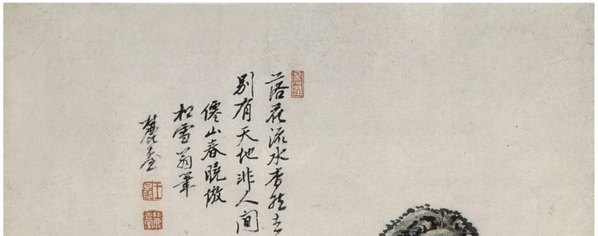 落花流水杳然去
別有天地非人間
僊山春曉倣
松雪翁筆
麓臺